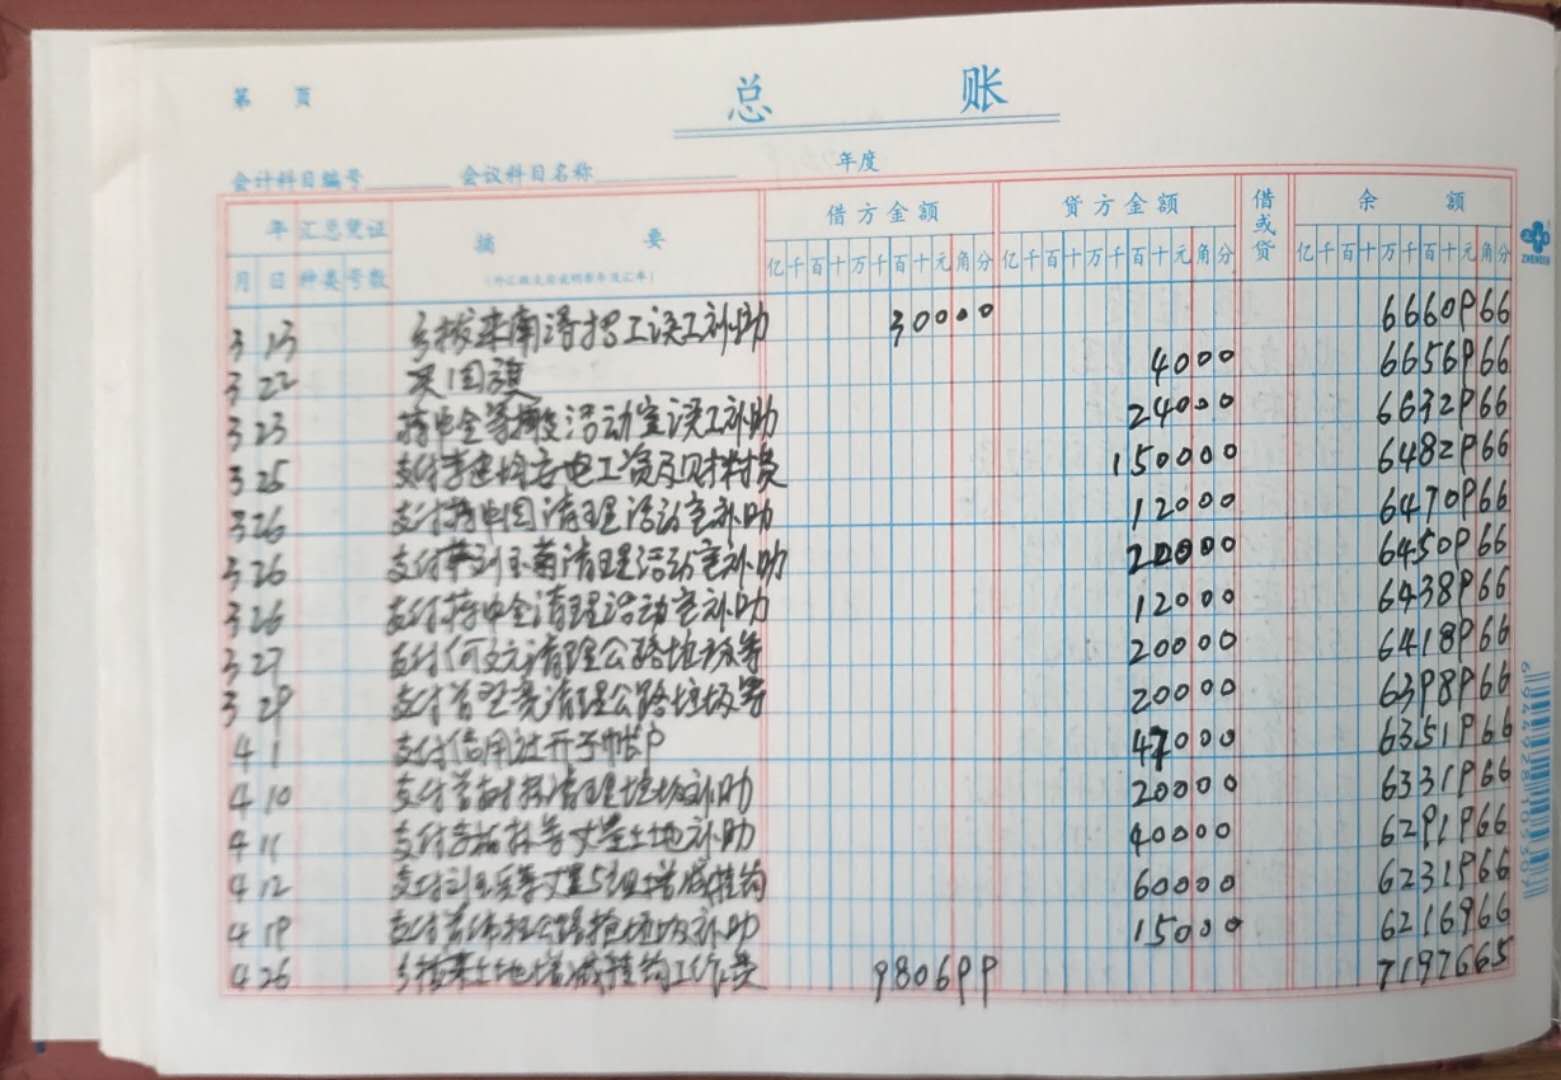 第 页
总 账
会计科目编号 会议科目名称 年度
年 汇总凭证 摘 要 借方金额 贷方金额 借或贷 余 额
月 日 种类 号数 亿千百十万千百十元角分 亿千百十万千百十元角分 亿千百十万千百十元角分
3 13 乡拨来南 工误工补助 30000 6660966
3 22 买国旗 4000 6656966
3 23 蒋中全等搬活动室误工补助 24000 6632966
3 25 支付李 电工资及材料费 150000 6482966
3 26 支付蒋中国清理活动室补助 12000 6470966
3 26 支付 刘玉菊清理活动室补助 20000 6450966
3 26 支付蒋中全清理活动室补助 12000 6438966
3 27 支付何文 清理公路垃圾等 20000 6418966
3 29 支付 清理公路垃圾等 20000 6398966
4 1 支付信用社开子帐户 47000 6351966
4 10 支付 清理垃圾补助 20000 6331966
4 11 支付李 林等丈量土地补助 40000 6291966
4 12 支付刘玉 等丈量5组增减挂钩 60000 6231966
4 19 支付 公路 垃圾补助 15000 6216966
4 26 乡拨来土地增减挂钩工作费 980699 7197665
ZHENGXIN